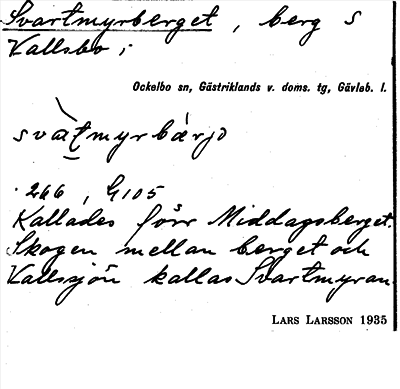 Svartmyrberget, berg S
Vallsbo;
Ockelbo sn, Gästriklands v. doms. tg, Gävleb. l.
svàtmyrbærjə
266, G105
Kallades förr Middagsberget.
Skogen mellan berget och
Vallsjön kallas Svartmyran.
LARS LARSSON 1935